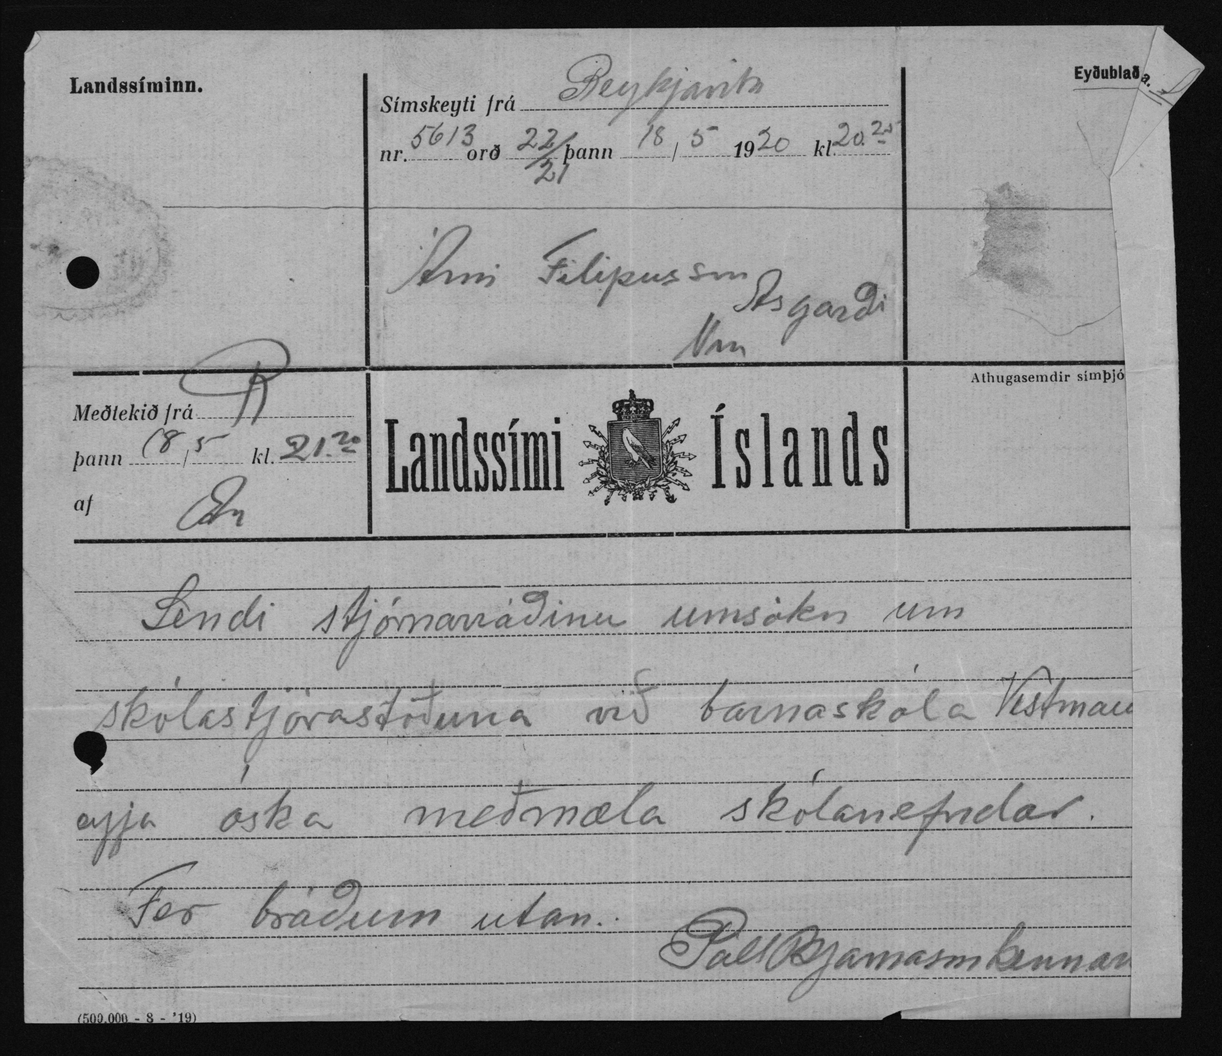 Landssíminn.
Eyðublað a.
Símskeyti frá Reykjavík
nr. 5613 orð 22/21 þann 18/5 1920 kl 20.25
Árni Filipusson
Asgarði
Vm
Meðtekið frá R
þann 18/5 kl. 21.20
af
Landssími Íslands
Athugasemdir símþjó
Sendi stjórnarráðinu umsókn um
skólastjórastöðuna við barnaskóla Vestman
eyja óska meðmæla skólanefndar.
Fer bráðum utan.
Páll Bjarnason kennar
(500.000 - 8 - '19)